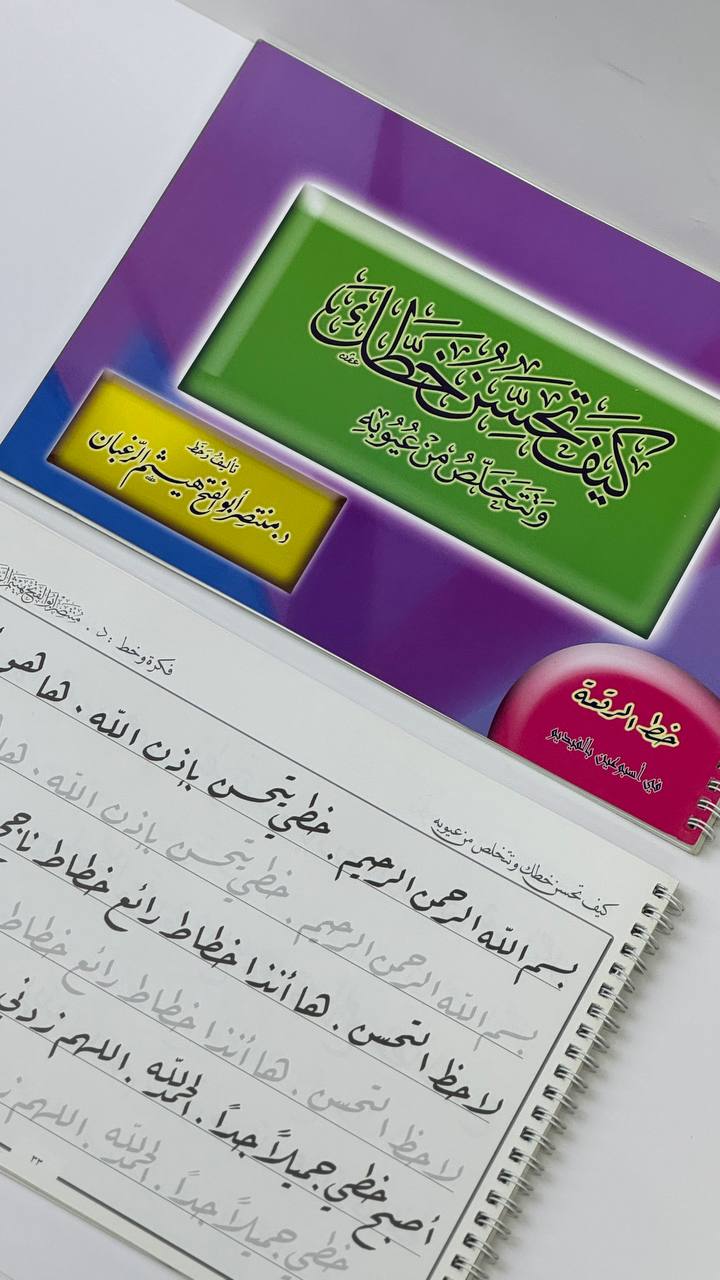 كيف تحسّن خطّك
وتتخلّصُ من عُيُوبِهِ
تأليفُ وخطُّ
د. منتصِر أبو الفتح هيثم الزّغبان
خط الرقعة
في أسبوعين بالفيديو
كيف تحسن خطك وتتخلص من عيوبه
فكرة وخط : د. منتصر أبو الفتح هيثم
بسم الله الرحمن الرحيم . خطي يتحسن بإذن الله . ها هو
بسم الله الرحمن الرحيم . خطي يتحسن بإذن الله . ها
لاحظ التحسن . ها أنذا خطاط رائع خطاط ناجح
لاحظ التحسن . ها أنذا خطاط رائع خطاط
أصبح خطي جميلاً جداً . الحمد لله . اللهم زدني
خطي جميلاً جداً . الحمد لله . اللهم
٣٣